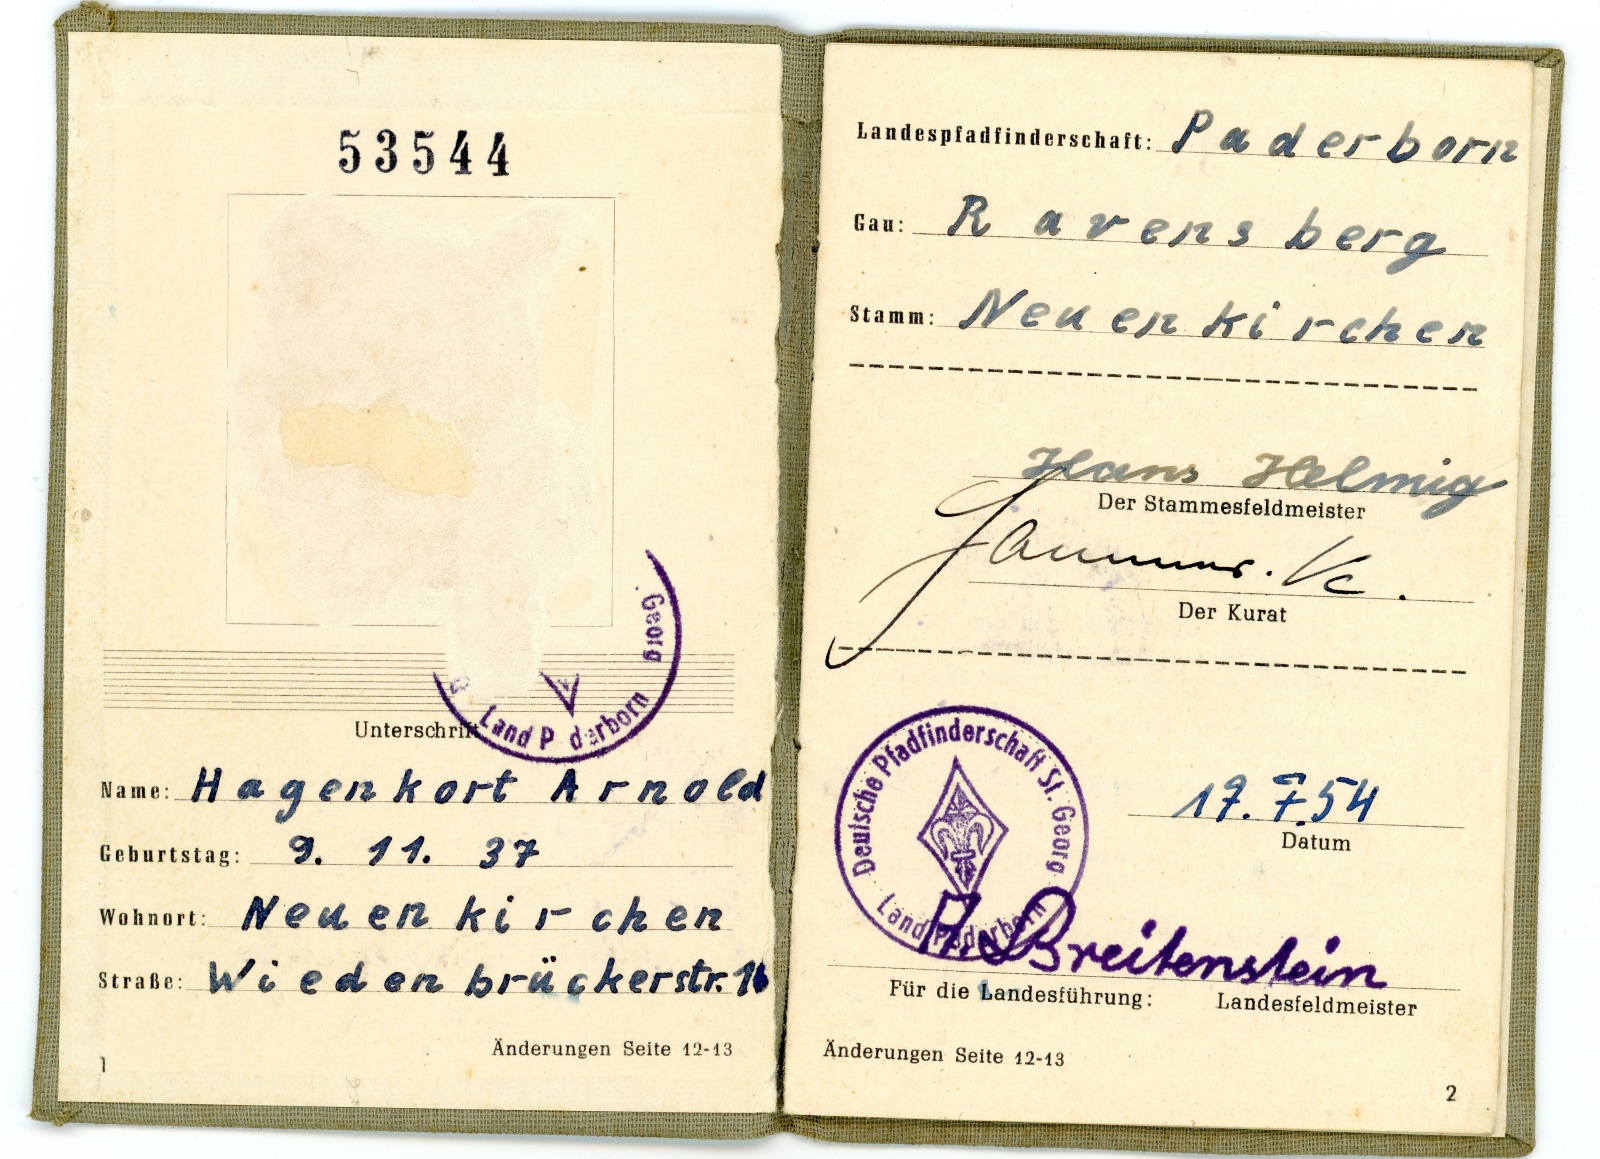 53544
Georg
Land P derborn
Unterschrift
Name: Hagenkort Arnold
Geburtstag: 9. 11. 37
Wohnort: Neuenkirchen
Straße: Wiedenbrückerstr. 16
Änderungen Seite 12-13
1
Landespfadfinderschaft: Paderborn
Gau: Ravensberg
Stamm: Neuenkirchen
Hans Helmig
Der Stammesfeldmeister
Der Kurat
Deutsche Pfadfinderschaft St. Georg
Land Paderborn
17. 7. 54
Datum
H. Breitenstein
Für die Landesführung: Landesfeldmeister
Änderungen Seite 12-13
2